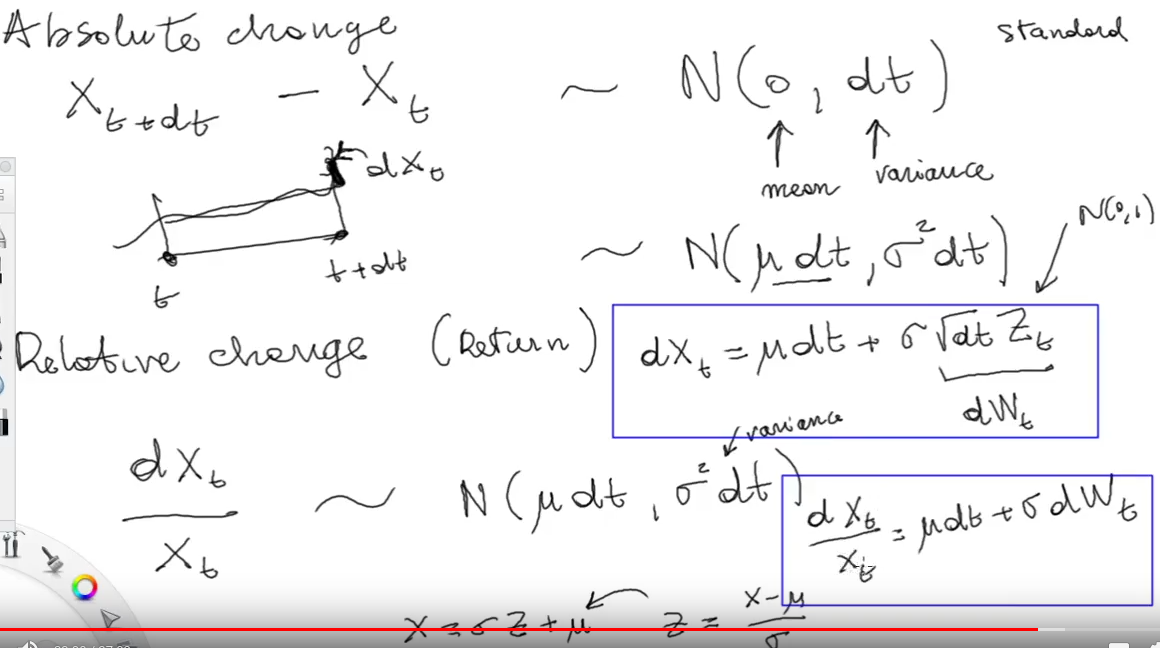 Absolute change
standard
X_{t+dt} - X_t ~ N(0, dt)
mean
variance
dX_t
N(0,1)
t
t+dt
~ N(μdt, σ²dt)
Relative change (Return)
dX_t = μdt + σ√dt Z_t
dW_t
variance
dX_t / X_t ~ N(μdt, σ²dt)
dX_t / X_t = μdt + σdW_t
X = σZ + μ
Z = X-μ / σ